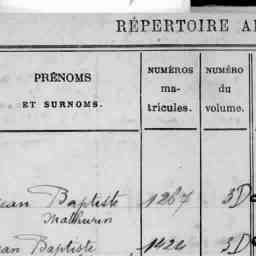 RÉPERTOIRE AL
PRÉNOMS
ET SURNOMS.
NUMÉROS
ma-
tricules.
NUMÉRO
du
volume.
ean Baptiste 1287 3D
Mathurin
ean Baptiste 1424 3D